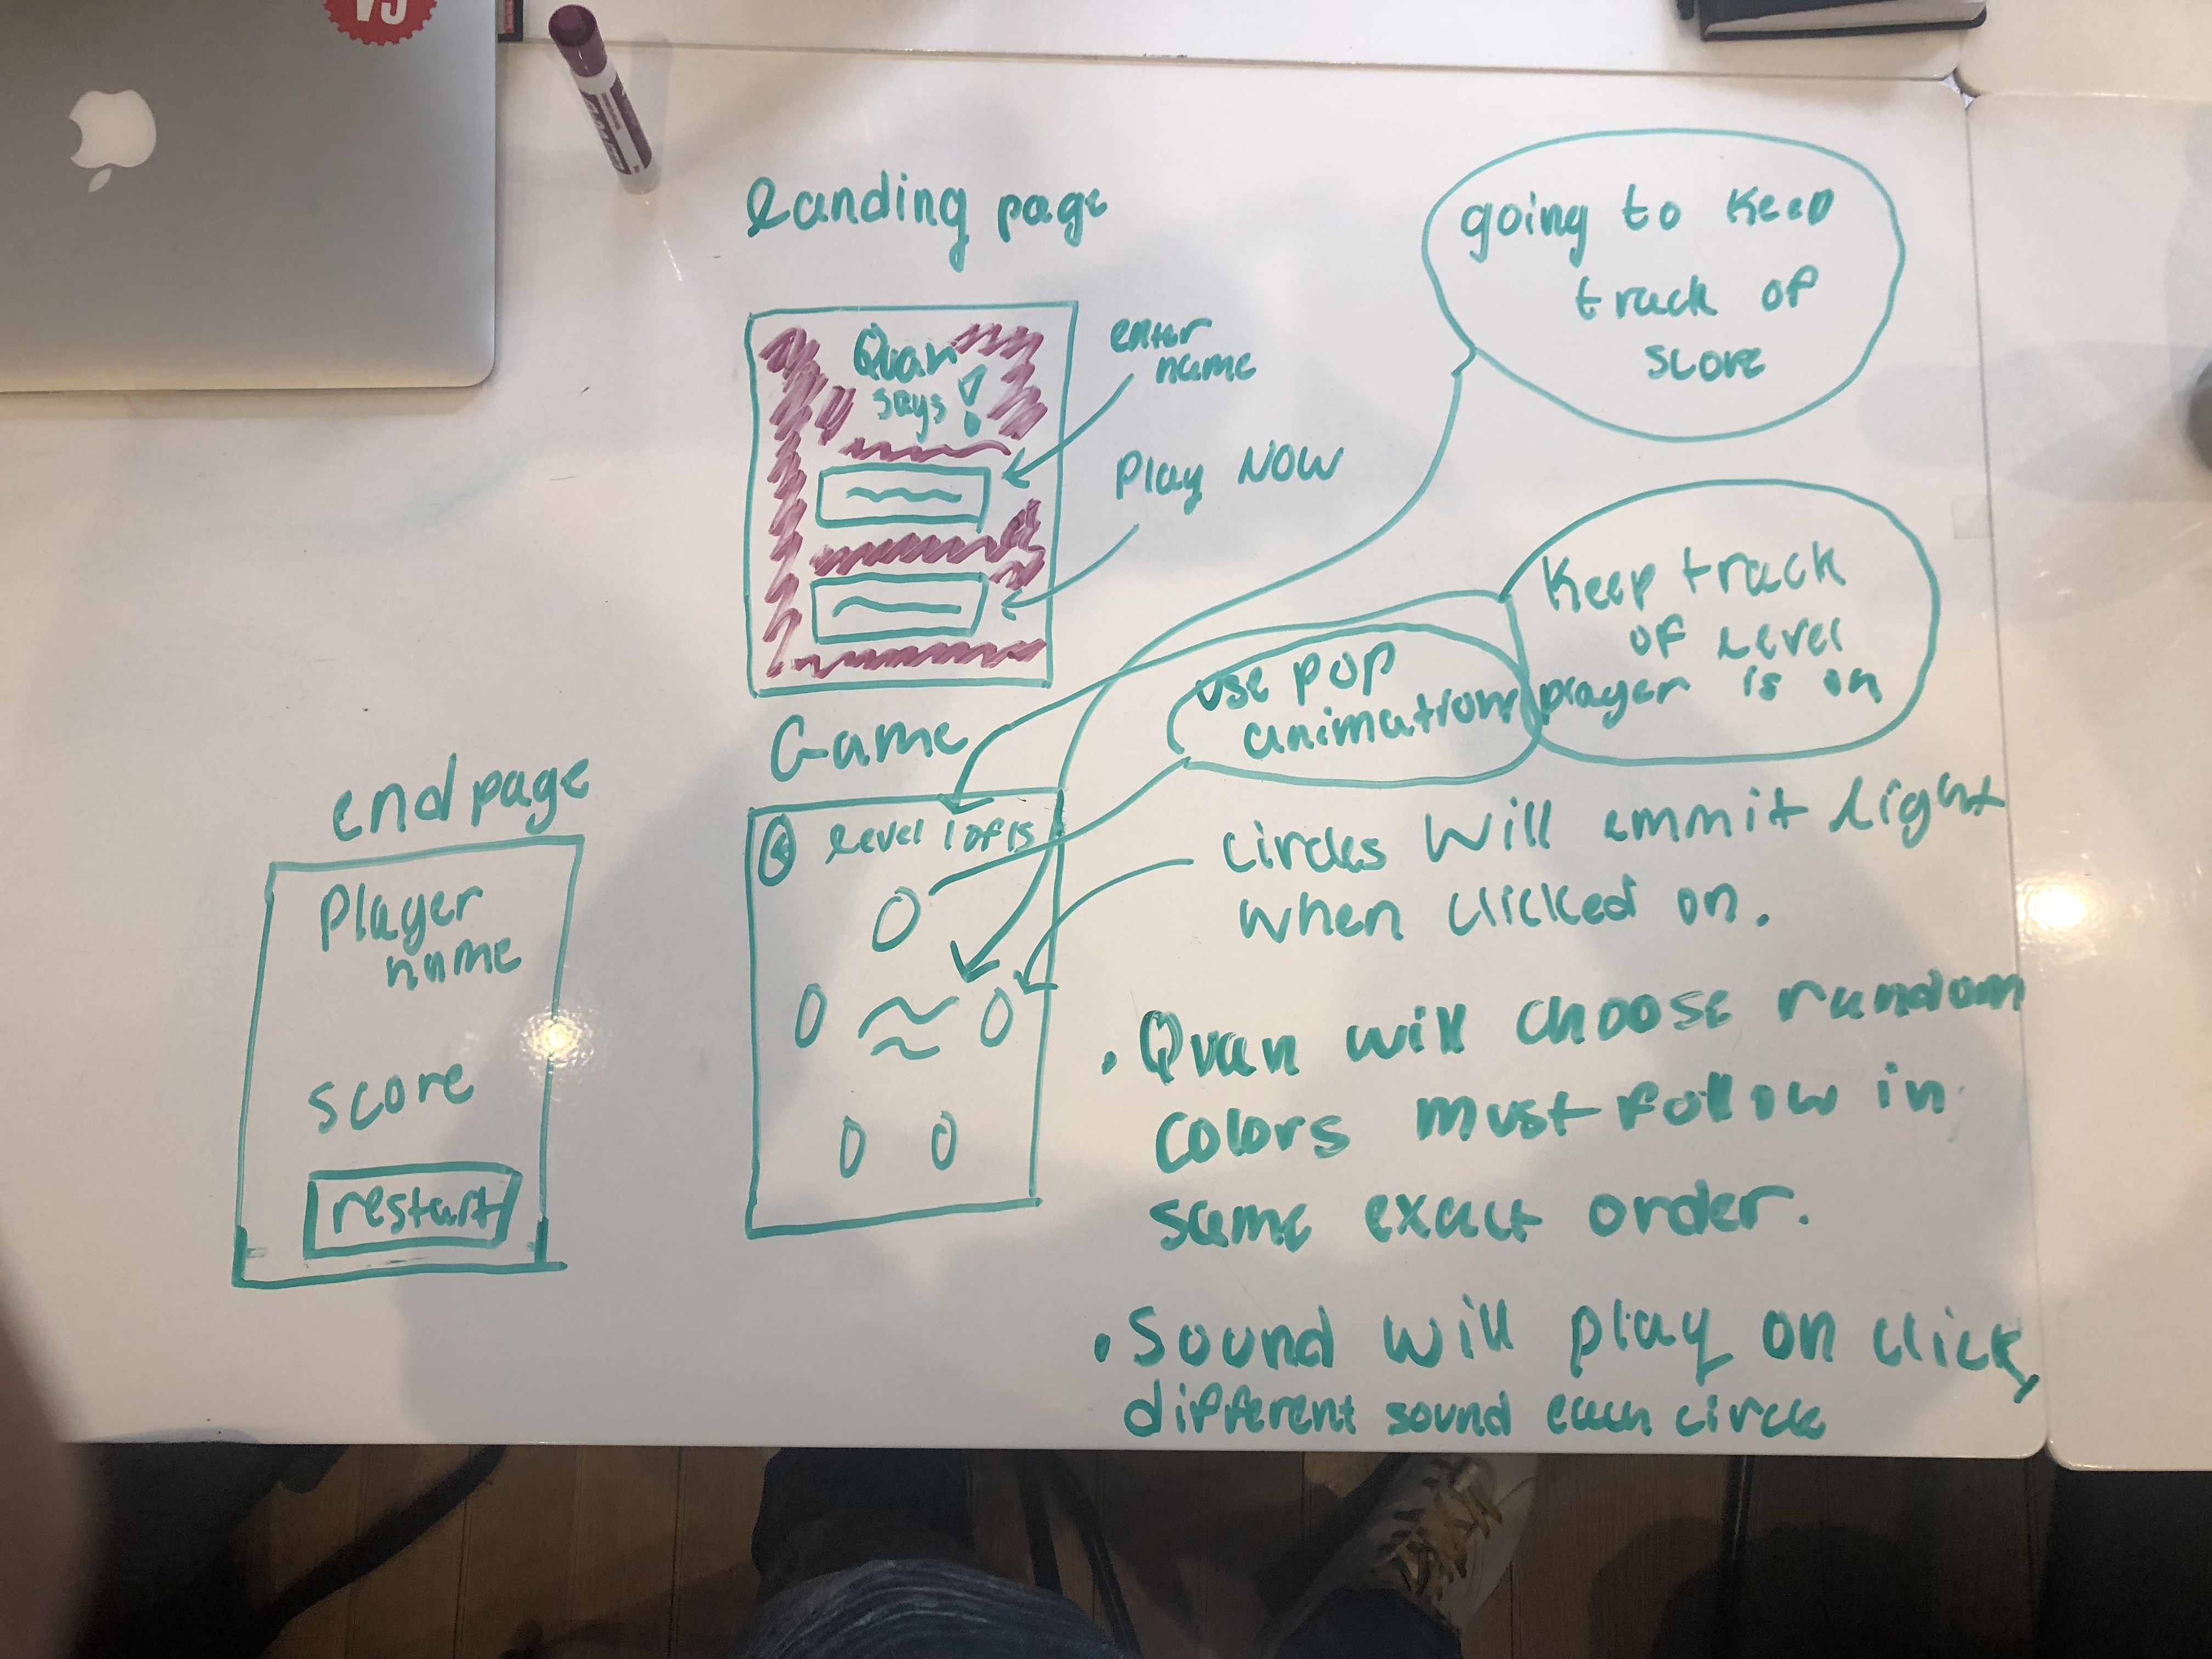 Landing page
Quan
says!
enter
name
Play NOW
going to keep
track of
score
Game
Level 1 of 15
Keep track
of Level
player is on
use pop
animations
circles will emmit light
when clicked on.
• Quan will choose random
Colors must follow in
same exact order.
• Sound will play on click,
different sound each circle
end page
Player
name
Score
restart
SanDisk